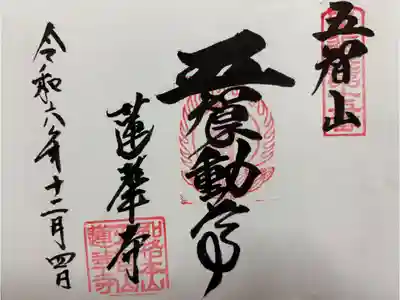 五智山
動尊
蓮華寺
別格本山
五智山
蓮華寺
令和六年十二月四日